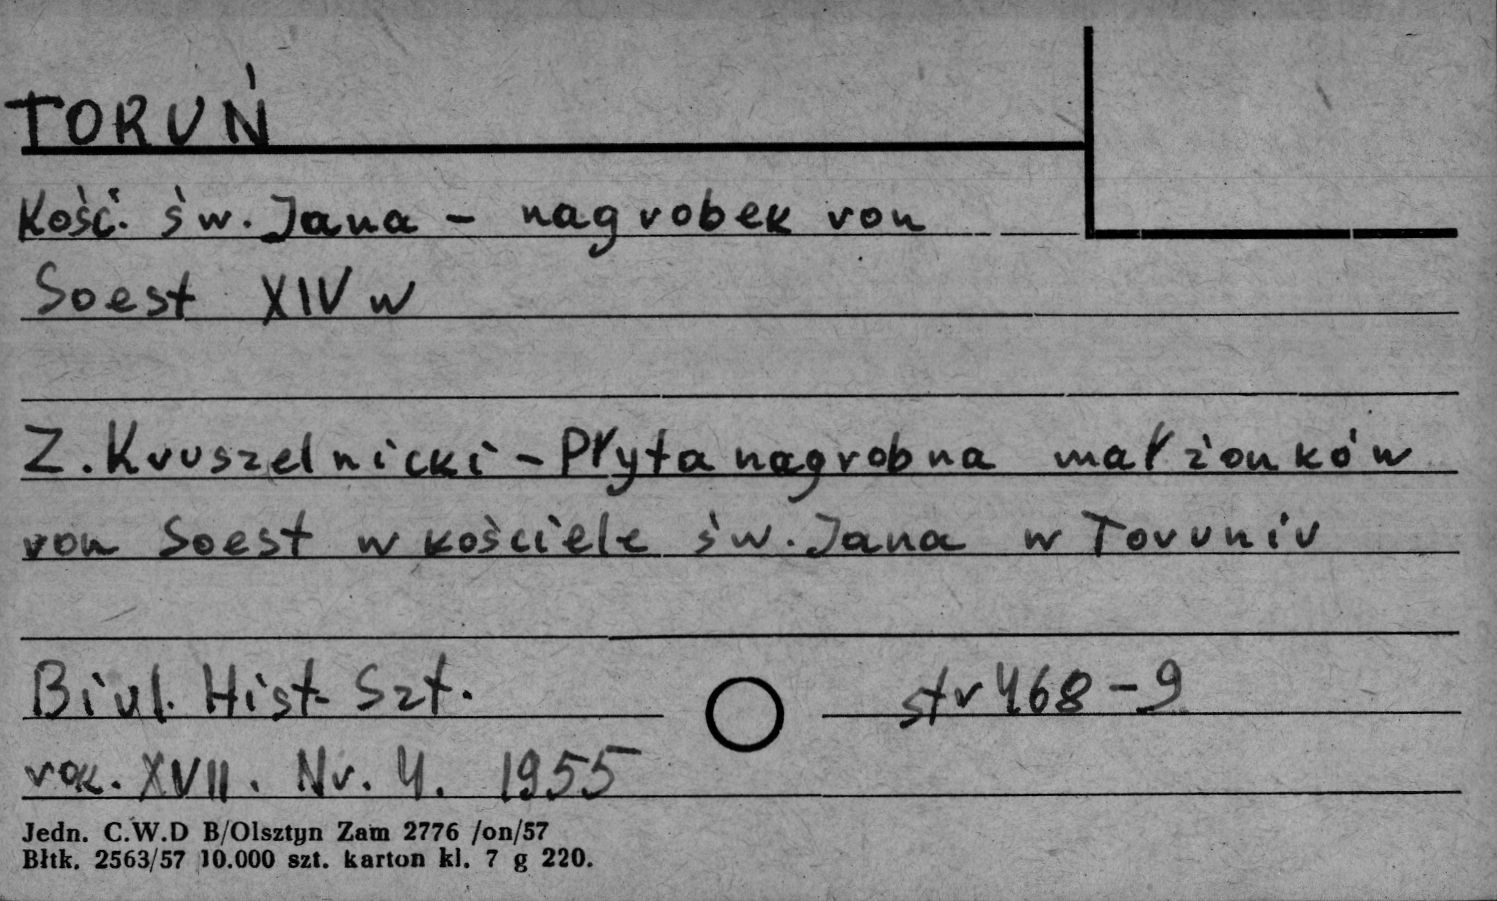 TORUŃ
Kość. św. Jana - nagrobek von
Soest XIV w
Z. Kruszelnicki - Płyta nagrobna małżonków
von Soest w kościele św. Jana w Toruniu
Biul. Hist. Szt.
str 468-9
rok. XVII. Nr. 4. 1955
Jedn. C.W.D B/Olsztyn Zam 2776 /on/57
Błtk. 2563/57 10.000 szt. karton kl. 7 g 220.